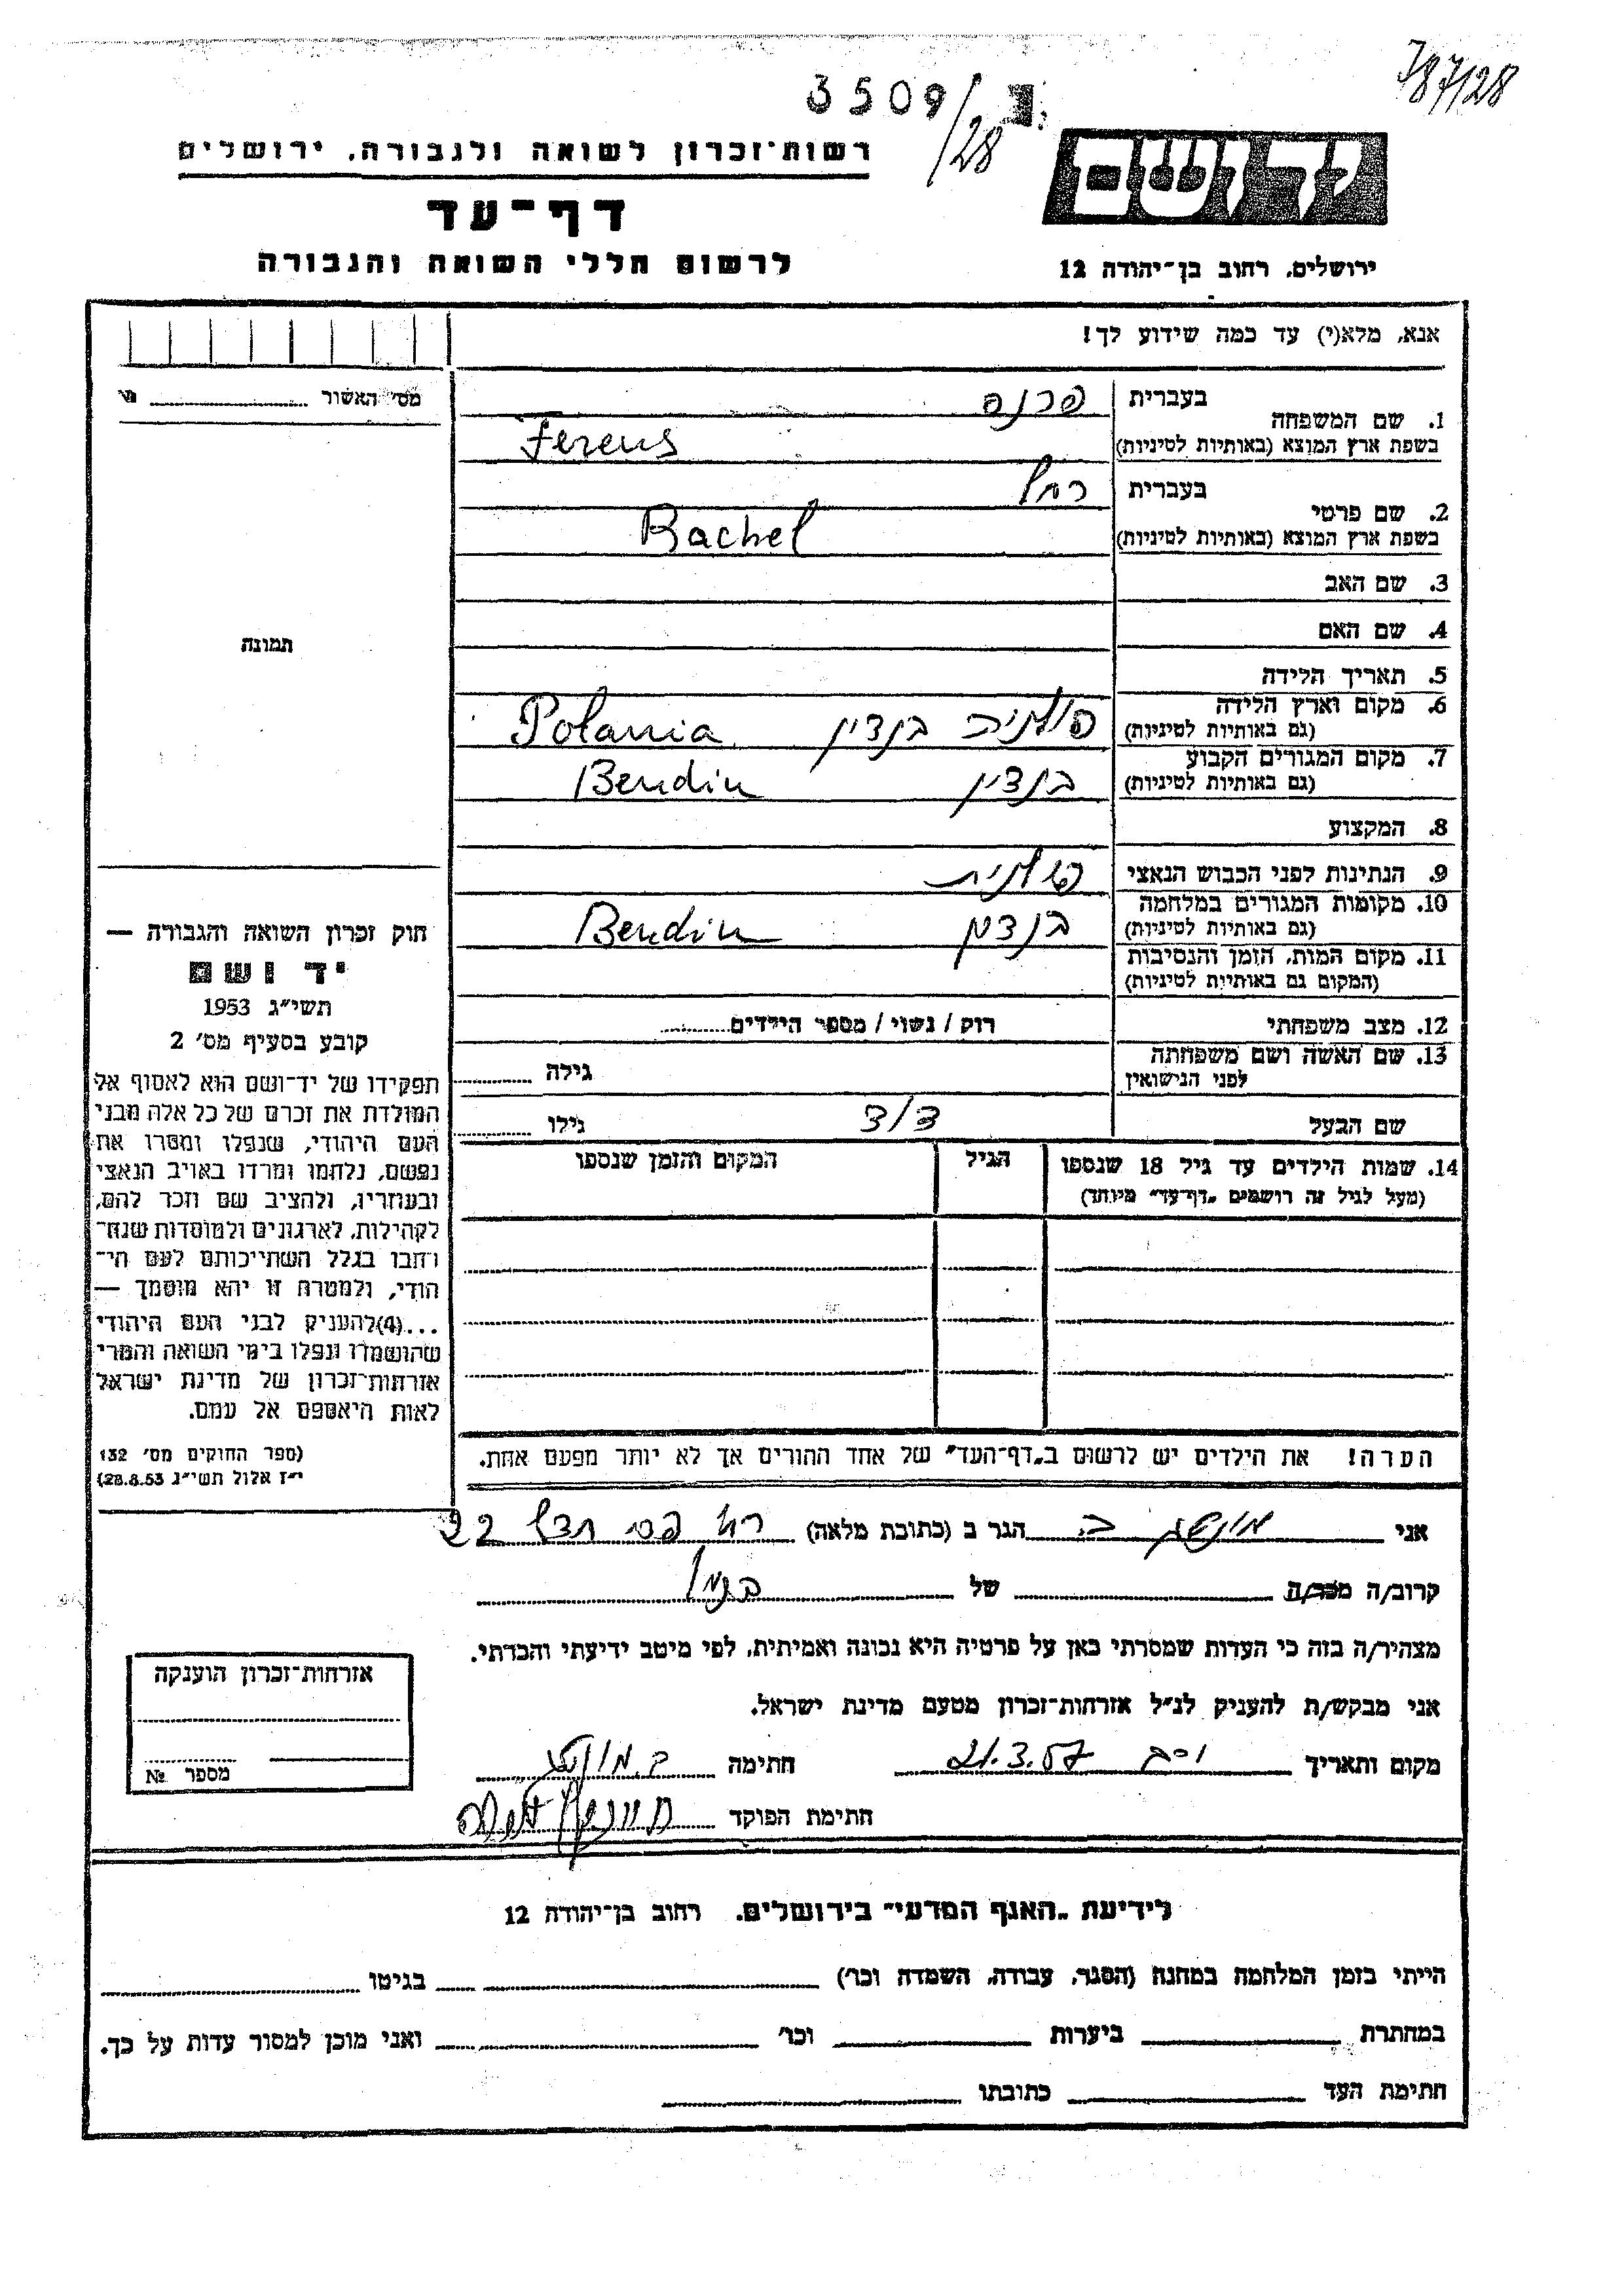 787/28
3509/28
יד ושם
רשות־זכרון לשואה ולגבורה, ירושלים
דף־עד
לרשום חללי השואה והגבורה
ירושלים, רחוב בן־יהודה 12
אנא, מלא(י) עד כמה שידוע לך!
מס׳ האשור
1. שם המשפחה
בעברית פרנס
בשפת ארץ המוצא (באותיות לטיניות) Ferens
2. שם פרטי
בעברית רחל
בשפת ארץ המוצא (באותיות לטיניות) Rachel
3. שם האב
4. שם האם
תמונה
5. תאריך הלידה
6. מקום וארץ הלידה
(גם באותיות לטיניות) פולניה בנדין Polania
7. מקום המגורים הקבוע
(גם באותיות לטיניות) בנדין Bendin
8. המקצוע
9. הנתינות לפני הכבוש הנאצי פולנית
10. מקומות המגורים במלחמה
(גם באותיות לטיניות) בנדין Bendin
11. מקום המות, הזמן והנסיבות
(המקום גם באותיות לטיניות)
12. מצב משפחתי רוק / נשוי / מספר הילדים
13. שם האשה ושם משפחתה
לפני הנישואין
גילה
שם הבעל
גילו
14. שמות הילדים עד גיל 18 שנספו
(מעל לגיל זה רושמים „דף־עד״ מיוחד)
הגיל
המקום והזמן שנספו
הערה! את הילדים יש לרשום ב„דף־העד״ של אחד ההורים אך לא יותר מפעם אחת.
חוק זכרון השואה והגבורה —
יד ושם
תשי״ג 1953
קובע בסעיף מס׳ 2
תפקידו של יד־ושם הוא לאסוף אל
המולדת את זכרם של כל אלה מבני
העם היהודי, שנפלו ומסרו את
נפשם, נלחמו ומרדו באויב הנאצי
ובעוזריו, ולהציב שם וזכר להם,
לקהילות, לארגונים ולמוסדות שנח־
רבו בגלל השתייכותם לעם הי־
הודי, ולמטרה זו יהא מוסמך —
...(4)להעניק לבני העם היהודי
שהושמדו ונפלו בימי השואה והמרי
אזרחות־זכרון של מדינת ישראל
לאות היאספם אל עמם.
(ספר החוקים מס׳ 132
י״ז אלול תשי״ג 28.8.53)
אני הגר ב (כתובת מלאה) 22
קרוב/ה מכר/ה של
מצהיר/ה בזה כי העדות שמסרתי כאן על פרטיה היא נכונה ואמיתית, לפי מיטב ידיעתי והכרתי.
אני מבקש/ת להעניק לנ״ל אזרחות־זכרון מטעם מדינת ישראל.
מקום ותאריך 21.3.57 חתימה
חתימת הפוקד
אזרחות־זכרון הוענקה
מספר №
לידיעת „האגף המדעי״ בירושלים, רחוב בן־יהודה 12
הייתי בזמן המלחמה במחנה (הסגר, עבודה, השמדה וכו׳) בגיטו
במחתרת ביערות וכו׳ ואני מוכן למסור עדות על כך.
חתימת העד כתובתו